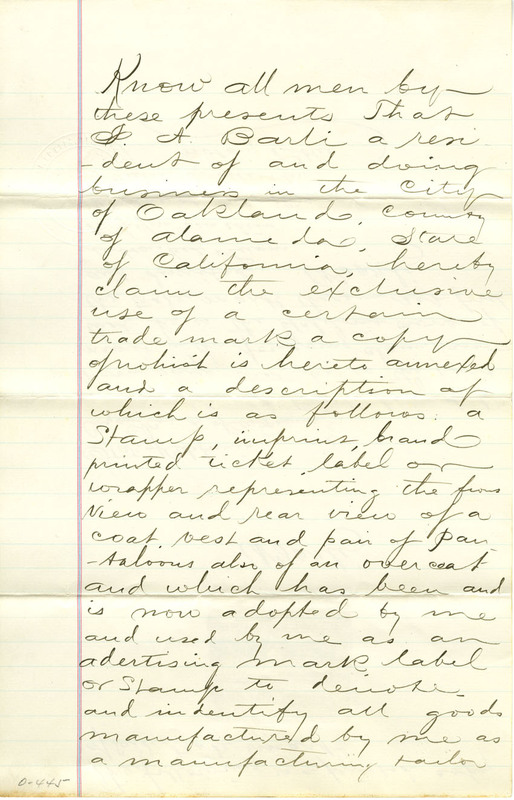 Know all men by
these presents That
I. A. Barli a resi
-dent of and doing
business in the City
of Oakland, county
of Alameda, State
of California, hereby
claim the exclusive
use of a certain
trade mark a copy
of which is hereto annexed
and a description of
which is as follows: a
Stamp, imprint, brand
printed ticket label or
wrapper representing the
view and rear view of a
coat vest and pair of pan
-taloons also of an over coat
and which has been and
is now adopted by me
and used by me as an
adertising mark label
or Stamp to denote
and indentify all goods
manufactured by me as
a manufacturing tailor
0-445